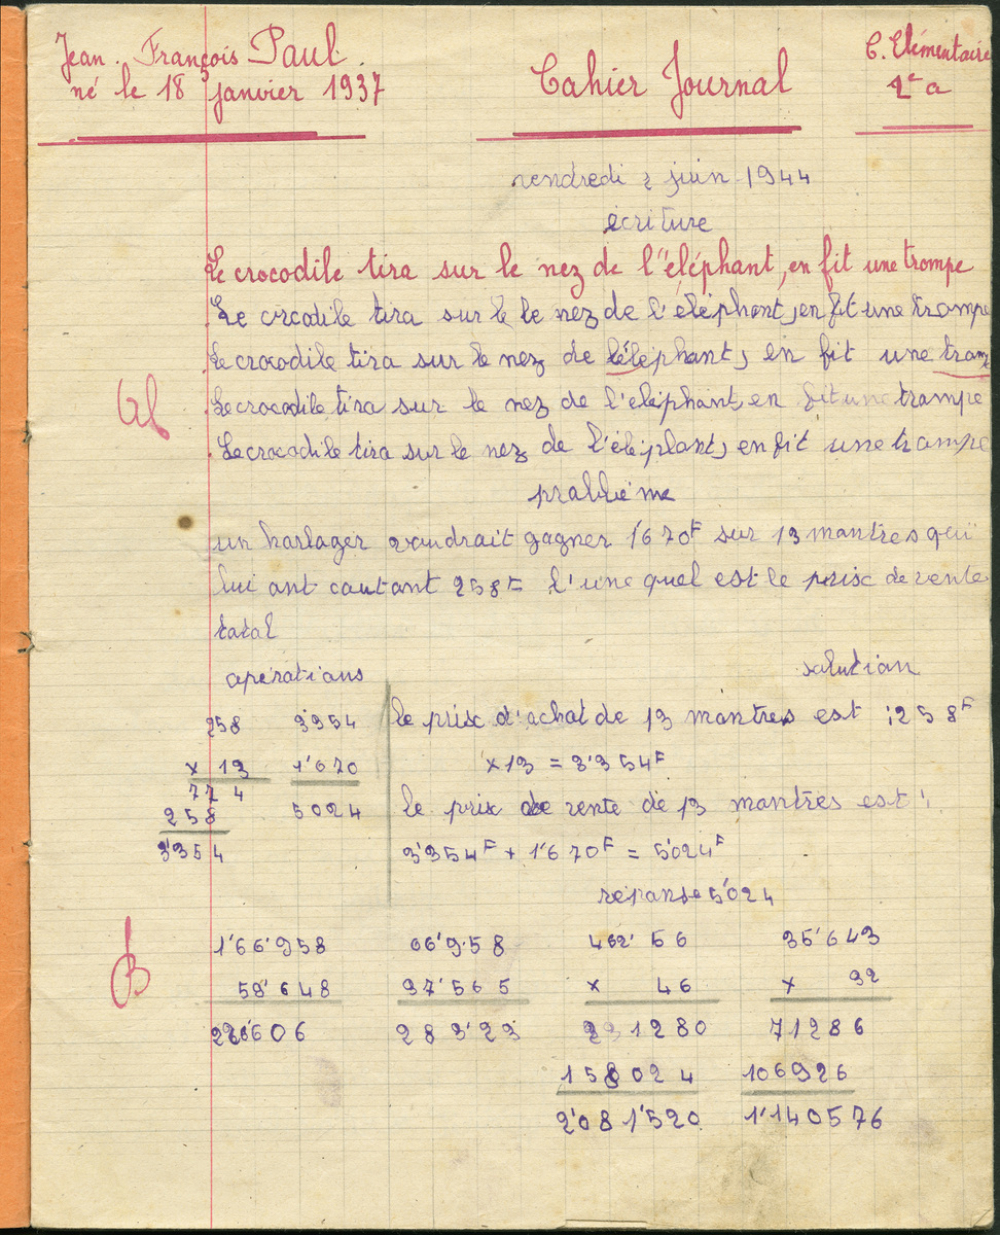 Jean. François Paul.
né le 18 janvier 1937
Cahier Journal
C. Elémentaire
2e a
vendredi 2 juin 1944
écriture
Le crocodile tira sur le nez de l'éléphant, en fit une trompe
Le crcodile tira sur le le nez de l'éléphant, en fit une trompe
Le crocodile tira sur le nez de léléphant, en fit une tromp
Le crocodile tira sur le nez de l'eléphant, en fit une trompe
Le crocodile tira sur le nez de l'éléplant, en fit une trompe
problème
un horloger voudrait gagner 1'670F sur 13 montres qui
lui ont coutant 258F l'une quel est le prix de vente
total
opérations
solution
258 3354
× 13 1'670
774 5024
258
3'354
le prix d'achat de 13 montres est : 258F
×13 = 3'354F
le prix de vente de 13 montres est :
3'354F + 1'670F = 5'024F
réponse 5'024
B
1'66'958 66'9·58 452'56 35'643
58'648 37'565 × 46 × 32
226'606 283'23 71286
106926
2'081'520 1'140576